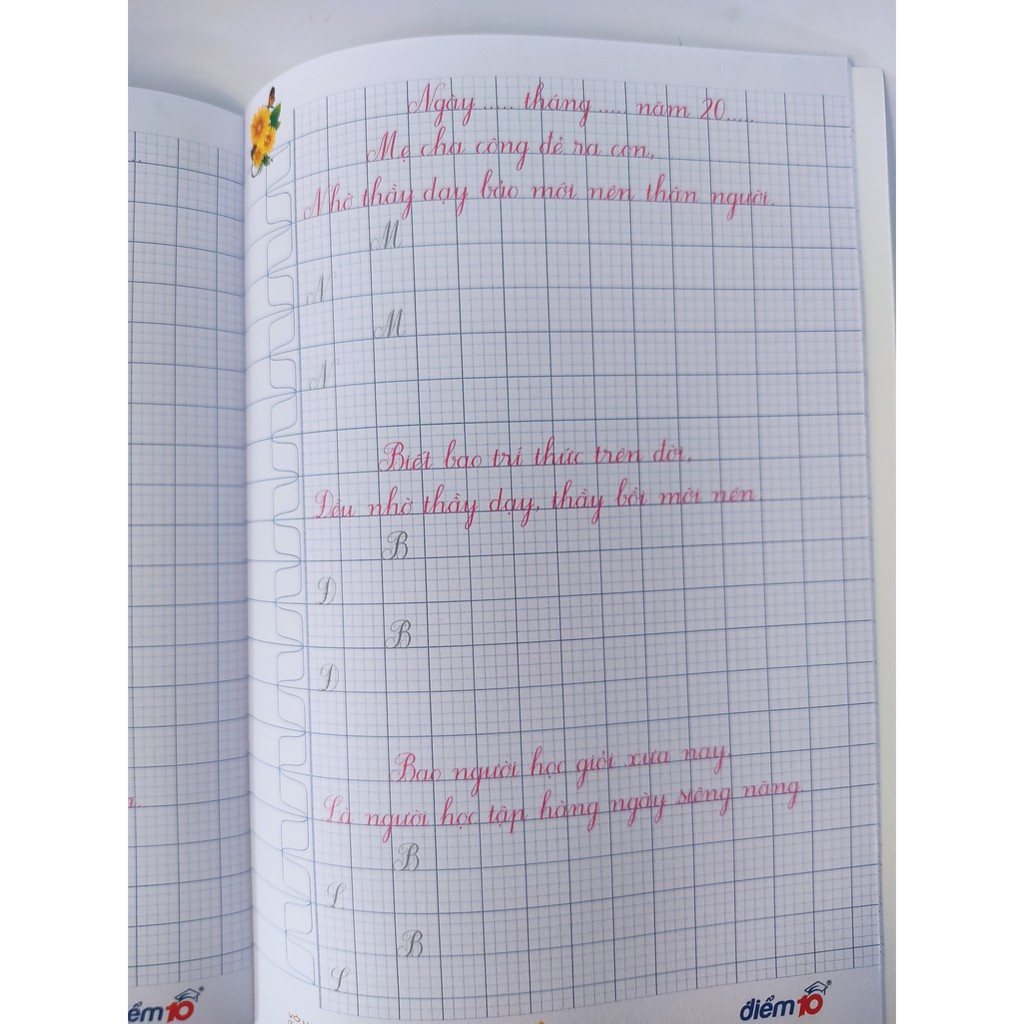 Ngày ..... tháng ..... năm 20.....
Mẹ cha công đẻ ra con,
Nhờ thầy dạy bảo mới nên thân người.
M
N
M
N
Biết bao tri thức trên đời,
Đều nhờ thầy dạy, thầy bồi mới nên
B
D
B
D
Bao người học giỏi xưa nay,
Là người học tập hàng ngày siêng năng
B
L
B
L
điểm10
ểm10